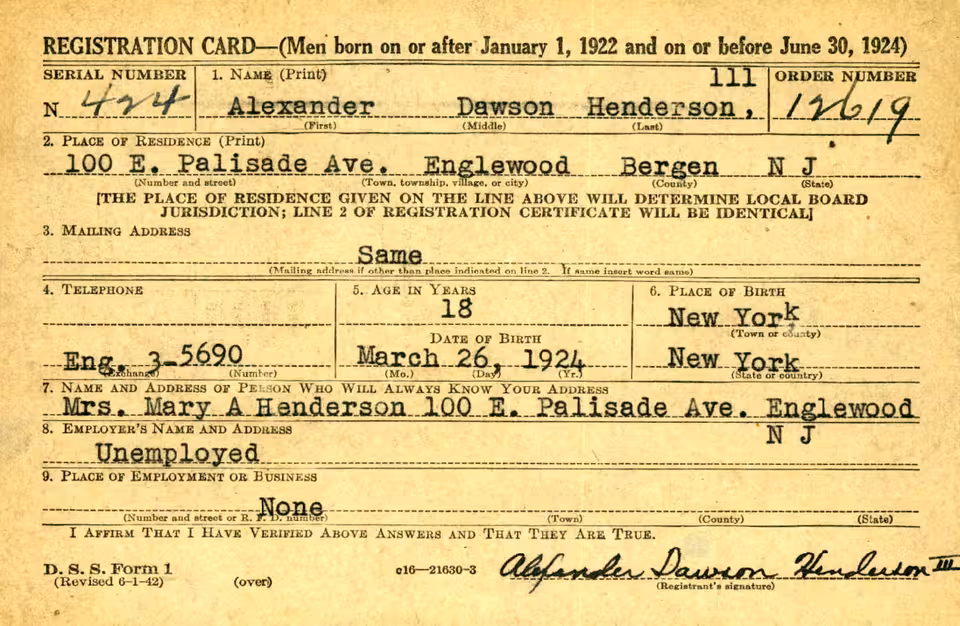 REGISTRATION CARD—(Men born on or after January 1, 1922 and on or before June 30, 1924)
SERIAL NUMBER 1. NAME (Print) 111 ORDER NUMBER
N 424 Alexander Dawson Henderson, 12619
(First) (Middle) (Last)
2. PLACE OF RESIDENCE (Print)
100 E. Palisade Ave. Englewood Bergen N J
(Number and street) (Town, township, village, or city) (County) (State)
[THE PLACE OF RESIDENCE GIVEN ON THE LINE ABOVE WILL DETERMINE LOCAL BOARD
JURISDICTION; LINE 2 OF REGISTRATION CERTIFICATE WILL BE IDENTICAL]
3. MAILING ADDRESS
Same
(Mailing address if other than place indicated on line 2. If same insert word same)
4. TELEPHONE 5. AGE IN YEARS 6. PLACE OF BIRTH
18 New York
(Town or county)
DATE OF BIRTH
Eng. 3-5690 March 26, 1924 New York
(Exchange) (Number) (Mo.) (Day) (Yr.) (State or country)
7. NAME AND ADDRESS OF PERSON WHO WILL ALWAYS KNOW YOUR ADDRESS
Mrs. Mary A Henderson 100 E. Palisade Ave. Englewood
8. EMPLOYER'S NAME AND ADDRESS N J
Unemployed
9. PLACE OF EMPLOYMENT OR BUSINESS
None
(Number and street or R. F. D. number) (Town) (County) (State)
I AFFIRM THAT I HAVE VERIFIED ABOVE ANSWERS AND THAT THEY ARE TRUE.
D. S. S. Form 1 c16—21630-3 Alexander Dawson Henderson III
(Revised 6-1-42) (over) (Registrant's signature)